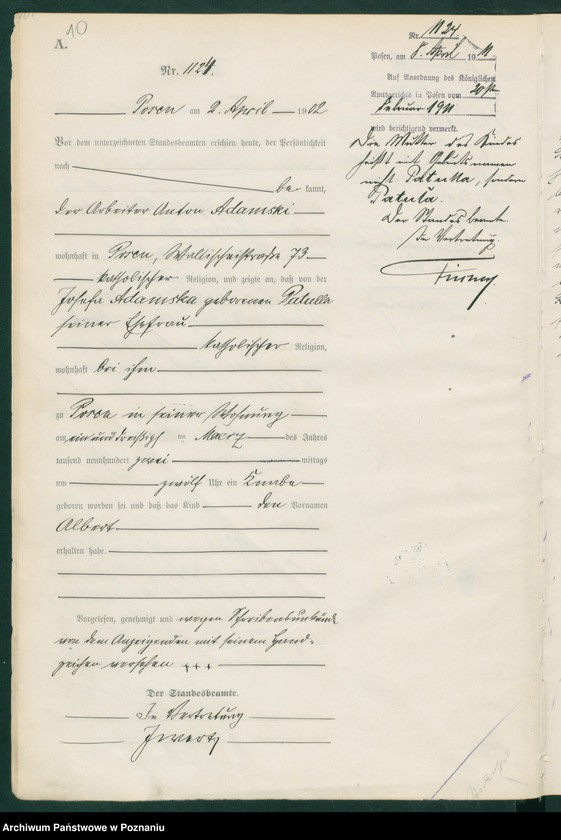 10
A.
Nr. 1124.
Posen am 2. April 1902
Vor dem unterzeichneten Standesbeamten erschien heute, der Persönlichkeit
nach be kannt,
Der Arbeiter Anton Adamski
wohnhaft in Posen, Wallischeistraße 73
katholischer Religion, und zeigte an, daß von der
Josefa Adamska geborenen Patulla
seiner Ehefrau
katholischer Religion,
wohnhaft bei ihm
zu Posen in seiner Wohnung
am einunddreißigsten Maerz des Jahres
tausend neunhundert zwei mittags
um zwölf Uhr ein Knabe
geboren worden sei und daß das Kind den Vornamen
Albert
erhalten habe.
Vorgelesen, genehmigt und wegen Schreibensunkunde
von dem Anzeigenden mit seinem Hand-
zeichen versehen +++
Der Standesbeamte.
In Vertretung
Nr. 1124.
Posen, am 8. April 1911.
Auf Anordnung des Königlichen
Amtsgerichts in Posen vom 20ten
Februar 1911
wird berichtigend vermerkt.
Die Mutter des Kindes
heißt mit Geburtsnamen
nicht Patulla, sondern
Patuła.
Der Standesbeamte
In Vertretung.
Archiwum Państwowe w Poznaniu